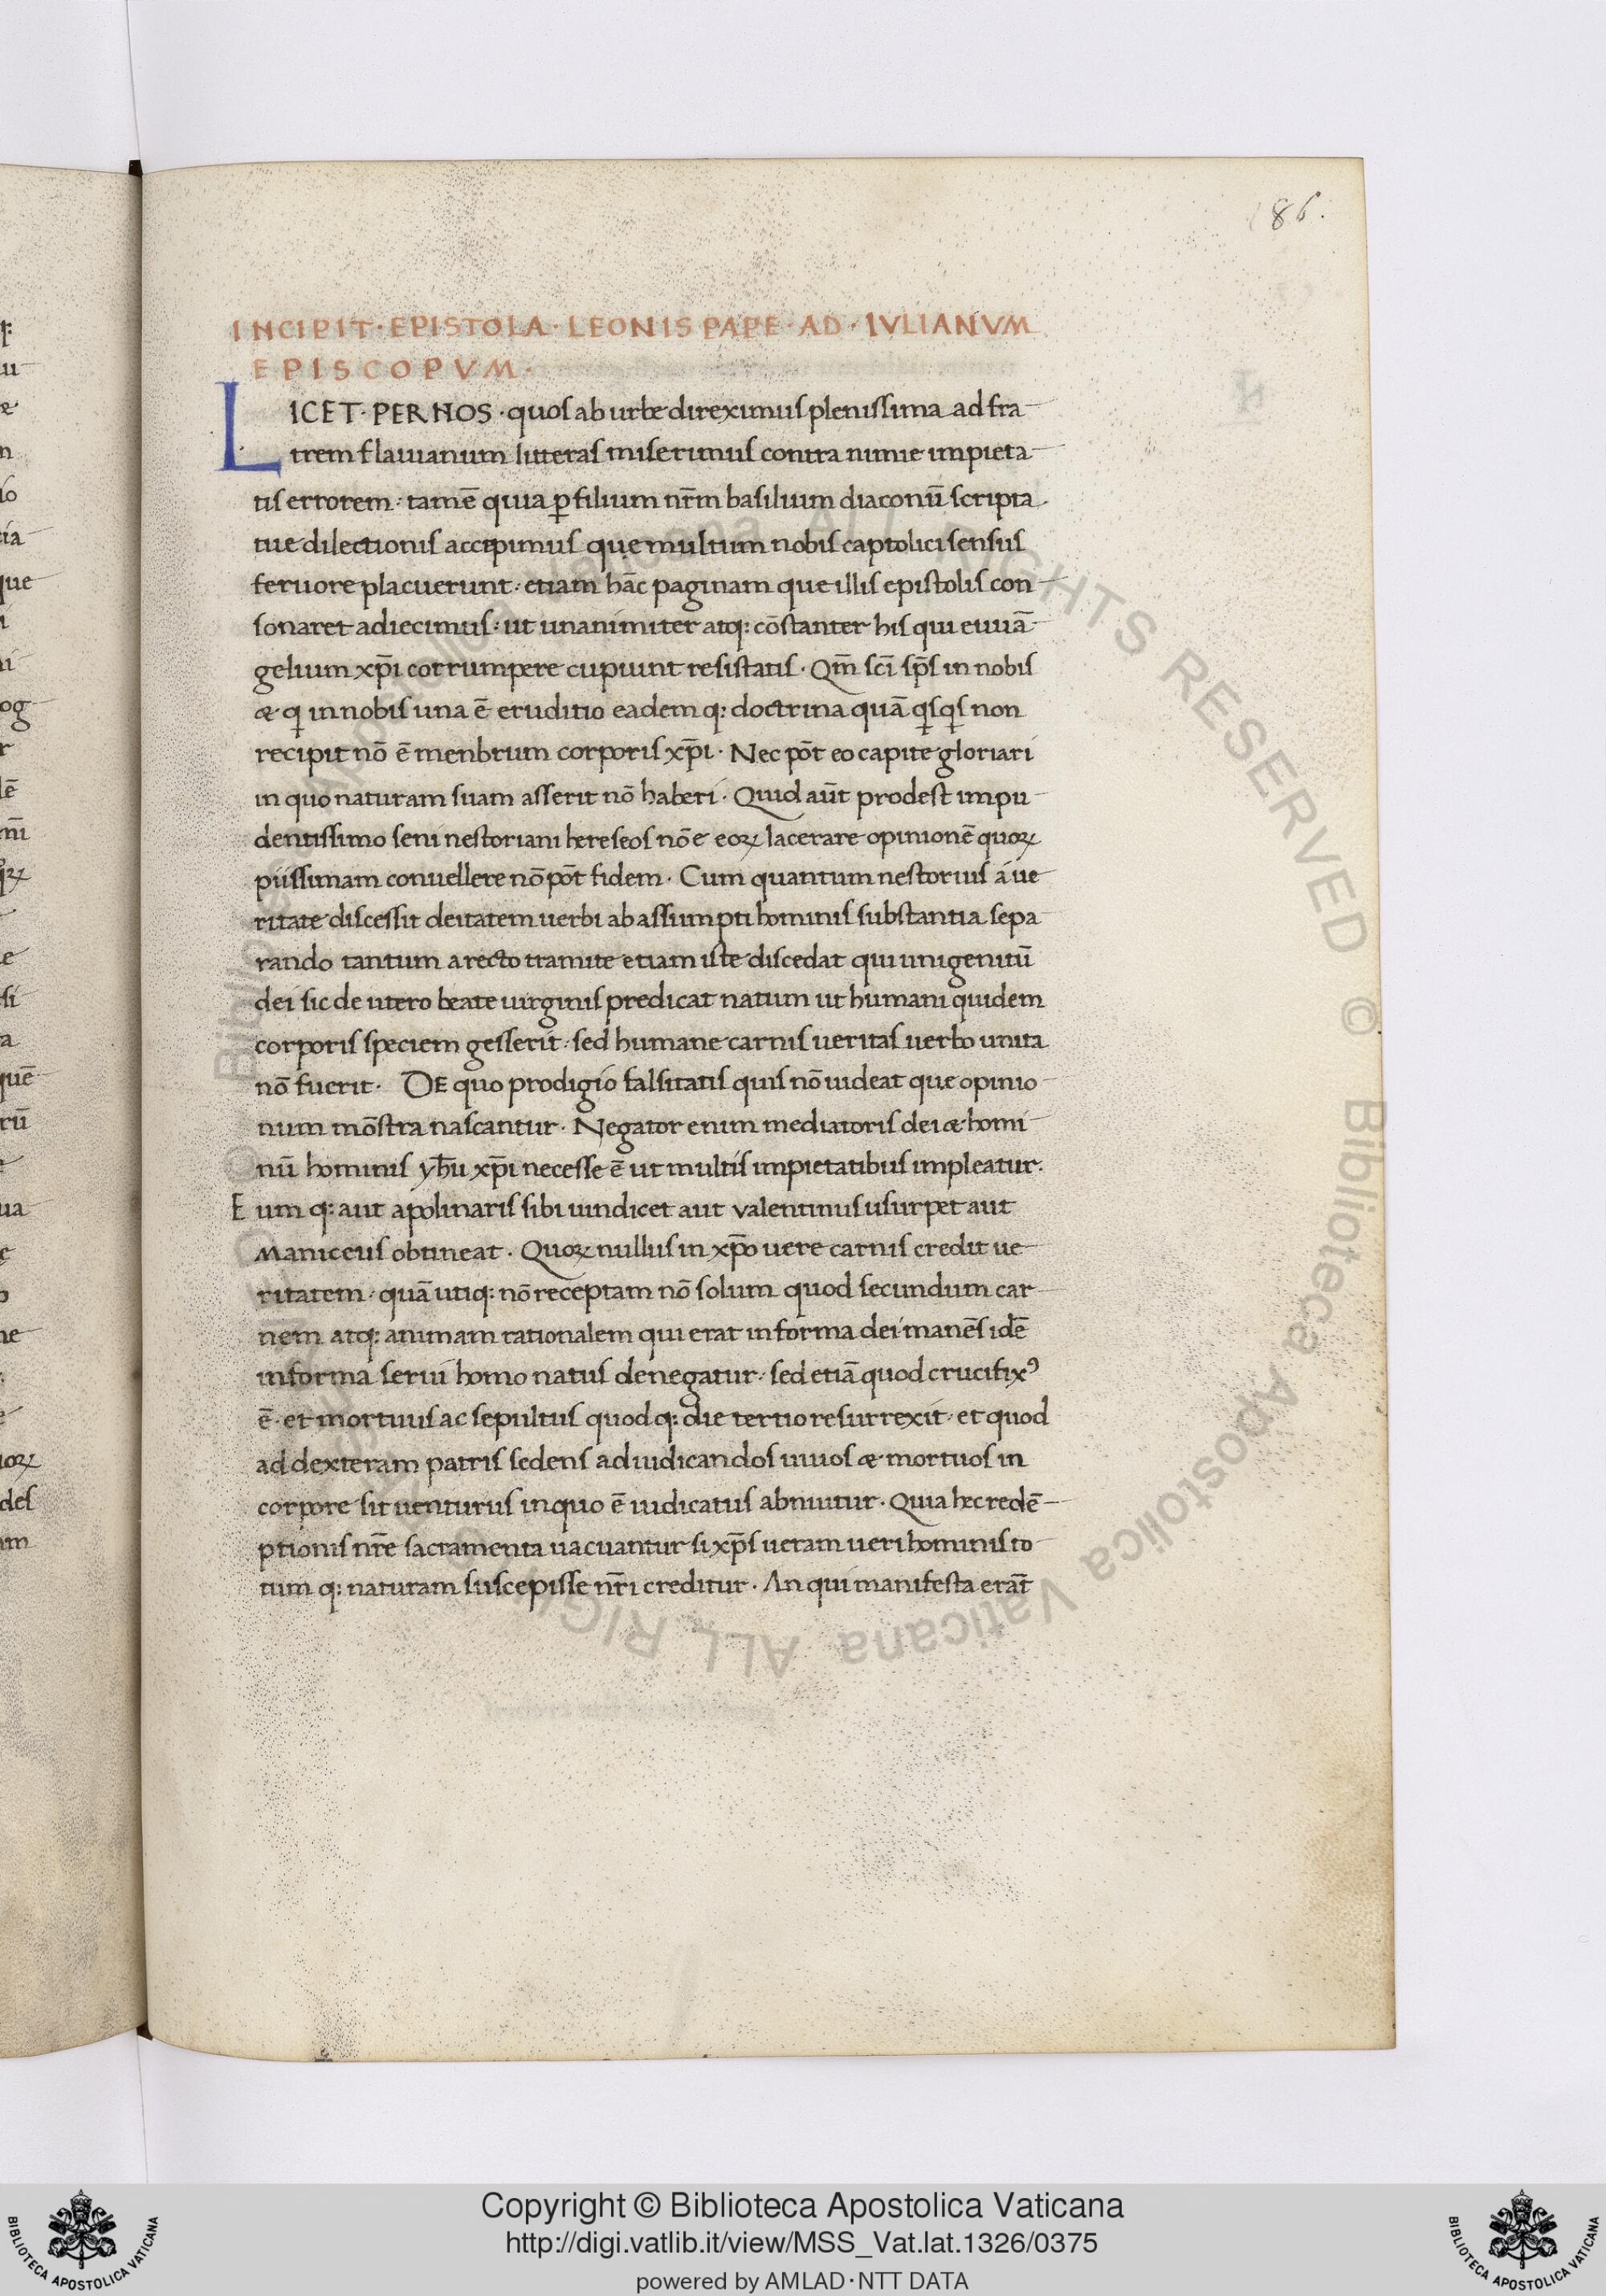 186.
INCIPIT · EPISTOLA · LEONIS PAPE · AD · IVLIANVM
EPISCOPVM ·
LICET · PER NOS · quos ab urbe direximus plenissima ad fra
trem flauianum litteras miserimus contra nimie impieta
tis errorem · tamē quia ꝑ filium nr̄m basilium diaconū scripta ·
tue dilectionis accepimus que multum nobis captolici sensus
feruore placuerunt · etiam hāc paginam que illis epistolis con
sonaret adiecimus · ut unanimiter atq: cōstanter his qui euuā
gelium xp̄i corrumpere cupiunt resistatis · Qm̄ sc̄i sp̄s in nobis
& qͥ in nobis una ē eruditio eadem q: doctrina quā qͥsqͥs non
recipit nō ē menbrum corporis xp̄i · Nec pōt eo capite gloriari
in quo naturam suam asserit nō haberi · Quid aūt prodest impu
dentissimo seni nestoriani hereseos nōe eoꝝ lacerare opinionē quoꝝ
piissimam conuellere nō pōt fidem · Cum quantum nestorius á ue
ritate discessit deitatem uerbi ab assumpti hominis substantia sepa
rando tantum a recto tramite etiam iste discedat qui unigenitū
dei sic de utero beate uirginis predicat natum ut humani quidem
corporis speciem gesserit · sed humane carnis ueritas uerbo unita
nō fuerit · DE quo prodigio falsitatis quis nō uideat que opinio
num mōstra nascantur · Negator enim mediatoris dei & homi
nū hominis yh̄u xp̄i necesse ē ut multis impietatibus impleatur.
Eum q: aut apolinaris sibi uindicet aut valentinus usurpet aut
Maniceus obtineat · Quoꝝ nullus in xp̄o uere carnis credit ue
ritatem · quā utiq: nō receptam nō solum quod secundum car
nem atq: animam rationalem qui erat in forma dei manēs idē
in forma serui homo natus denegatur · sed etiā quod crucifixꝰ
ē · et mortuus ac sepultus quod q: die tertio resurrexit · et quod
ad dexteram patris sedens ad iudicandos uiuos & mortuos in
corpore sit uenturus in quo ē iudicatus abnuitur · Quia hec redē
ptionis nr̄e sacramenta uacuantur si xp̄s ueram ueri hominis to
tum q: naturam suscepisse nr̄i creditur · An qui manifesta erāt
Copyright © Biblioteca Apostolica Vaticana
http://digi.vatlib.it/view/MSS_Vat.lat.1326/0375
powered by AMLAD·NTT DATA
BIBLIOTECA APOSTOLICA VATICANA
BIBLIOTECA APOSTOLICA VATICANA